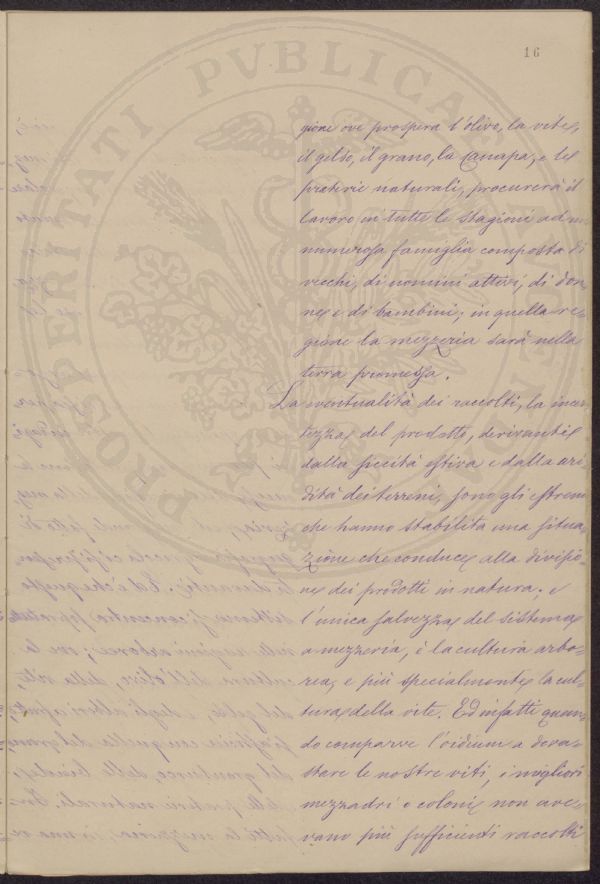 16
gione ove prospera l'olivo, la vite,
il gelso, il grano, la canapa, e le
praterie naturali, procurerà il
lavoro in tutte le stagioni ad una
numerosa famiglia composta di
vecchi, di uomini attivi, di don
ne e di bambini; in quella re-
gione la mezzeria sarà nella
terra promessa.
La eventualità dei raccolti, la incer
tezza del prodotto, derivante
dalla siccità estiva e dalla ari
dità dei terreni, sono gli estremi
che hanno stabilita una situa-
zione che conduce alla divisio-
ne dei prodotti in natura. e
l'unica salvezza del sistema
a mezzeria, è la cultura arbo-
rea, e più specialmente la cul-
tura della vite. Ed infatti quan-
do comparve l'oidium a deva-
stare le nostre viti, i migliori
mezzadri o coloni non ave-
vano più sufficienti raccolti
PROSPERITATI PVBLICAE